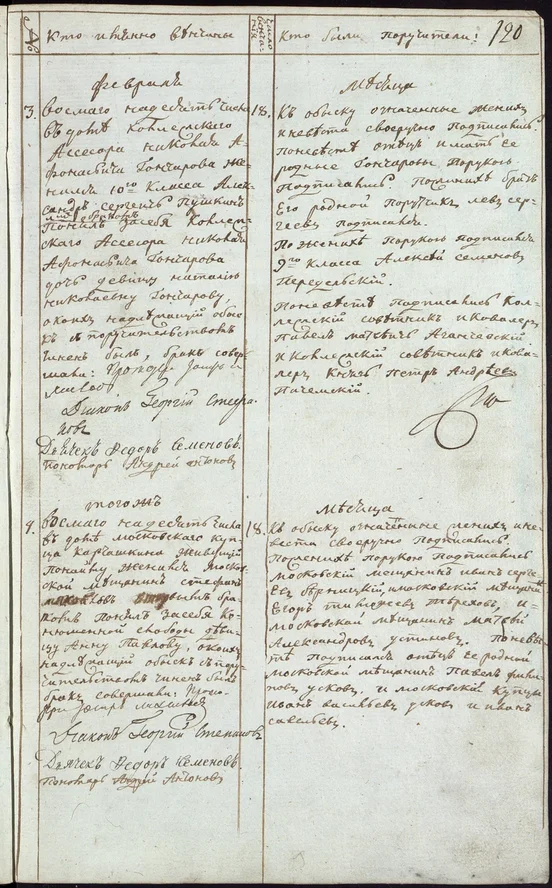 №
Кто имянно венчаны
число венча-
ния
Кто были поручители:
190
Февраля
Месяца
3.
восмаго надесять числа
въ доме Коллежскаго
Ассесора Николая А-
фонасьевича Гончарова же-
нился 10го класса Алек-
сандръ Сергеевъ Пушкинъ
первымъ бракомъ
понялъ за себя Коллеж-
скаго Ассесора Николая
Афонасьевича Гончарова
дочь девицу Наталию
Николаевну Гончарову
о коихъ надлежащий обыс-
къ с поручительствомъ
учиненъ былъ, бракъ совер-
шали:
Дьяконъ Георгий Степа-
новъ
Дьячекъ Федоръ Семеновъ.
Пономарь Андрей Антоновъ
18.
Къ обыску означенные женихъ
и невеста своеручно подписались.
По невесте отецъ и мать ее
родные Гончаровы порукою
подписались. По женихе братъ
Его родной порутчикъ Левъ Сер-
геевъ подписался.
По женихе порукою подписался
9го класса Алексей Семеновъ
Передельский.
По невесте подписались Кол-
лежский советникъ и Кавалеръ
Павелъ Матвеевъ Азанчевский
и Коллежский советникъ и Кава-
леръ Князь Петръ Андреевъ
того жъ
Месяца
4.
восмаго надесять числа
въ доме Московскаго куп-
ца живущий
женился Моско-
ской мещанинъ Стефанъ
понялъ за себя Ко-
нюшенной слободы деви-
цу Анну Павлову, о коихъ
надлежащий обыскъ с пор-
учительствомъ учиненъ былъ
бракъ совершали:
Дьяконъ Георгий Степановъ
Дьячекъ Федоръ Семеновъ.
Пономарь Андрей Антоновъ
18.
Къ обыску означенные женихъ и не-
веста своеручно подписались.
По женихе порукою подписались
Московский мещанинъ Иванъ Серге-
евъ Московский мещанинъ
Егоръ и
Московской мещанинъ Матвей
Александровъ По невес-
те подписался отецъ ее родной
Московской мещанинъ Павелъ Филип-
повъ и Московский купецъ
Иванъ Васильевъ и Иванъ
Савельевъ.